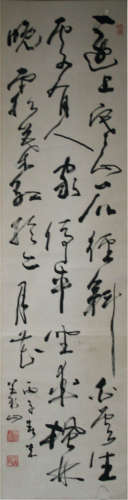 遠上寒山石徑斜白雲生
處有人家停車坐愛楓林
晚霜葉紅於二月花
丙子